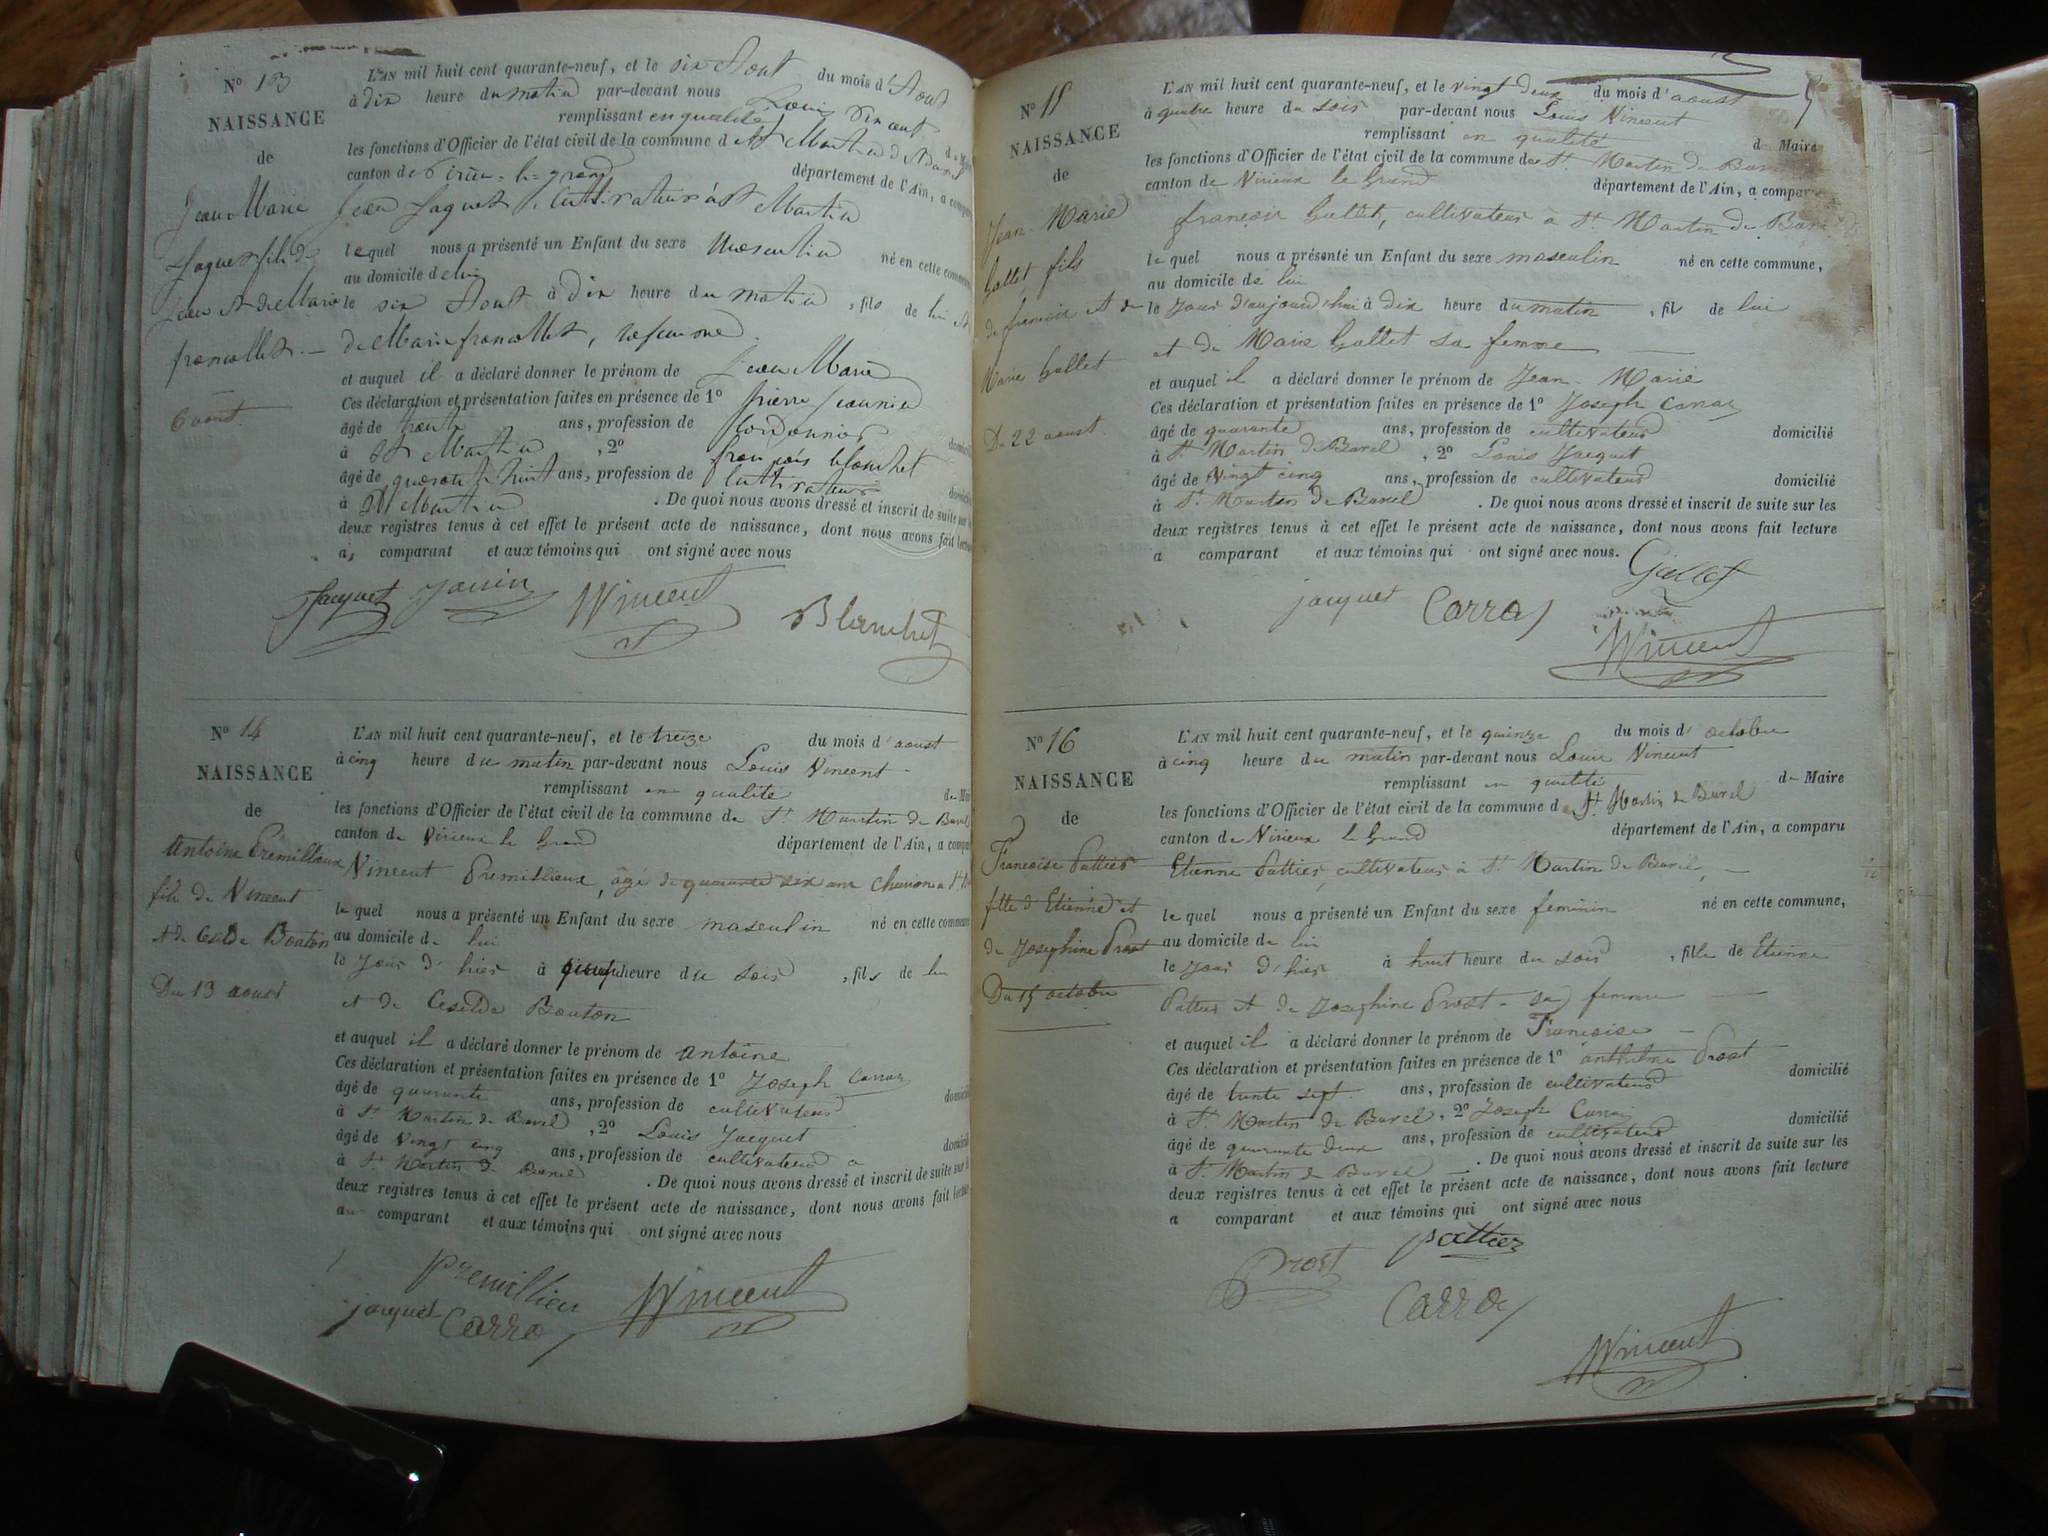 N° 13
NAISSANCE
de
Jean Marie
Jaquet fils de
Jean et de Marie
francollet
6 aout
L'AN mil huit cent quarante-neuf, et le six Aout du mois d'Aout
à dix heure du matin par-devant nous Louis Vincent
remplissant en qualité de Maire
les fonctions d'Officier de l'état civil de la commune d St Martin d
canton de Virieu-le-grand département de l'Ain, a comparu
Jean Jaquet cultivateur à St Martin
lequel nous a présenté un Enfant du sexe Masculin né en cette commune
au domicile de lui
le six Aout à dix heure du matin, fils de lui et
de Marie francollet, sa femme
et auquel il a déclaré donner le prénom de Jean Marie
Ces déclaration et présentation faites en présence de 1°
âgé de trente ans, profession de cordonnier
à St Martin, 2° françois blanchet
âgé de quarante huit ans, profession de cultivateur
à St Martin. De quoi nous avons dressé et inscrit de suite sur les
deux registres tenus à cet effet le présent acte de naissance, dont nous avons fait lecture
au comparant et aux témoins qui ont signé avec nous
Jacquet Vincent
Blanchet
N° 14
NAISSANCE
de
Antoine Premillieux
fils de Vincent
et de Cesilde Bouton
Du 13 aoust
L'AN mil huit cent quarante-neuf, et le treize du mois d'aoust
à cinq heure du matin par-devant nous Louis Vincent
remplissant en qualité de Maire
les fonctions d'Officier de l'état civil de la commune de St Martin de Bavel
canton de Virieux le Grand département de l'Ain, a comparu
Vincent Premillieux, âgé de quarante six ans
lequel nous a présenté un Enfant du sexe masculin né en cette commune
au domicile de lui
le jour d'hier à heure du soir, fils de lui
et de Cesilde Bouton
et auquel il a déclaré donner le prénom de antoine
Ces déclaration et présentation faites en présence de 1° Joseph Carraz
âgé de quarante ans, profession de cultivateur domicilié
à St Martin de Bavel, 2° Louis Jacquet
âgé de vingt cinq ans, profession de cultivateur domicilié
à St Martin de Bavel. De quoi nous avons dressé et inscrit de suite sur les
deux registres tenus à cet effet le présent acte de naissance, dont nous avons fait lecture
au comparant et aux témoins qui ont signé avec nous
Premillieu Vincent
jacquet Carraz
N° 15
NAISSANCE
de
Jean-Marie
Gallet fils
de francois et de
Marie Gallet
Du 22 aoust
L'AN mil huit cent quarante-neuf, et le vingt deux du mois d'aoust
à quatre heure du soir par-devant nous Louis Vincent
remplissant en qualité de Maire
les fonctions d'Officier de l'état civil de la commune de St Martin de Bavel
canton de Virieux le Grand département de l'Ain, a comparu
françois Gallet, cultivateur à St Martin de Bavel
lequel nous a présenté un Enfant du sexe masculin né en cette commune,
au domicile de lui
le jour d'aujourd'hui à dix heure du matin, fils de lui
et de Marie Gallet sa femme
et auquel il a déclaré donner le prénom de Jean-Marie
Ces déclaration et présentation faites en présence de 1° Joseph Carraz
âgé de quarante ans, profession de cultivateur domicilié
à St Martin de Bavel, 2° Louis Jacquet
âgé de vingt cinq ans, profession de cultivateur domicilié
à St Martin de Bavel. De quoi nous avons dressé et inscrit de suite sur les
deux registres tenus à cet effet le présent acte de naissance, dont nous avons fait lecture
a comparant et aux témoins qui ont signé avec nous.
Gallet
jacquet Carraz
Vincent
N° 16
NAISSANCE
de
Francoise Pattier
fille d'Etienne et
de Josephine Prost
Du 15 octobre
L'AN mil huit cent quarante-neuf, et le quinze du mois d'octobre
à cinq heure du matin par-devant nous Louis Vincent
remplissant en qualité de Maire
les fonctions d'Officier de l'état civil de la commune de St Martin de Bavel
canton de Virieux le Grand département de l'Ain, a comparu
Etienne Pattier, cultivateur à St Martin de Bavel,
lequel nous a présenté un Enfant du sexe feminin né en cette commune,
au domicile de lui
le jour d'hier à huit heure du soir, fille de Etienne
Pattier et de Josephine Prost sa femme
et auquel il a déclaré donner le prénom de Francoise
Ces déclaration et présentation faites en présence de 1° anthelme Prost
âgé de trente sept ans, profession de cultivateur domicilié
à St Martin de Bavel, 2° Joseph Carraz
âgé de quarante deux ans, profession de cultivateur domicilié
à St Martin de Bavel. De quoi nous avons dressé et inscrit de suite sur les
deux registres tenus à cet effet le présent acte de naissance, dont nous avons fait lecture
a comparant et aux témoins qui ont signé avec nous
Prost pattier
Carraz
Vincent